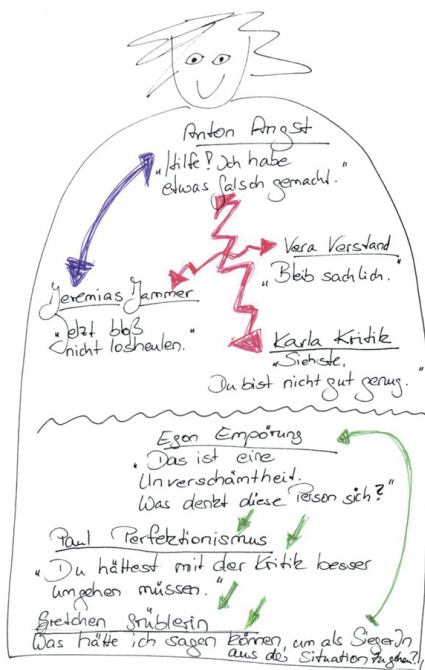 Anton Angst
"Hilfe! Ich habe
etwas falsch gemacht."
Vera Verstand
"Bleib sachlich."
Jeremias Jammer
"Jetzt bloß
nicht losheulen."
Karla Kritik
"Siehste,
Du bist nicht gut genug."
Egon Empörung
"Das ist eine
Unverschämtheit.
Was denkt diese Person sich?"
Paul Perfektionismus
"Du hättest mit der Kritik besser
umgehen müssen."
Gretchen Grüblerin
Was hätte ich sagen können, um als SiegerIn
aus der Situation zu gehen?"